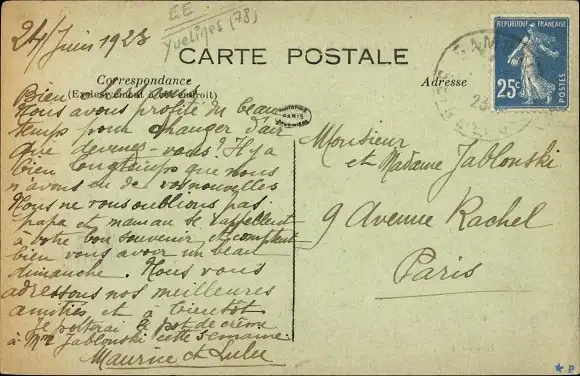 24 Juin 1923
EE
Yvelines (78)
CARTE POSTALE
Correspondance
(Exclusivement à cet endroit)
Adresse
REPUBLIQUE FRANÇAISE
25c
POSTES
PARIS
Bien chers amis
Nous avons profité du beau
temps pour changer d'air
que devenez-vous? Il y a
bien longtemps que nous
n'avons eu de vos nouvelles
Nous ne vous oublions pas
papa et maman se rappellent
à votre bon souvenir et comptent
bien vous avoir un beau
dimanche. Nous vous
adressons nos meilleures
amitiés et à bientôt
Je porterai le pot de crème
à Mme Jablonski cette semaine.
Maurice et Lulu
Monsieur
et Madame Jablonski
9 Avenue Rachel
Paris
P